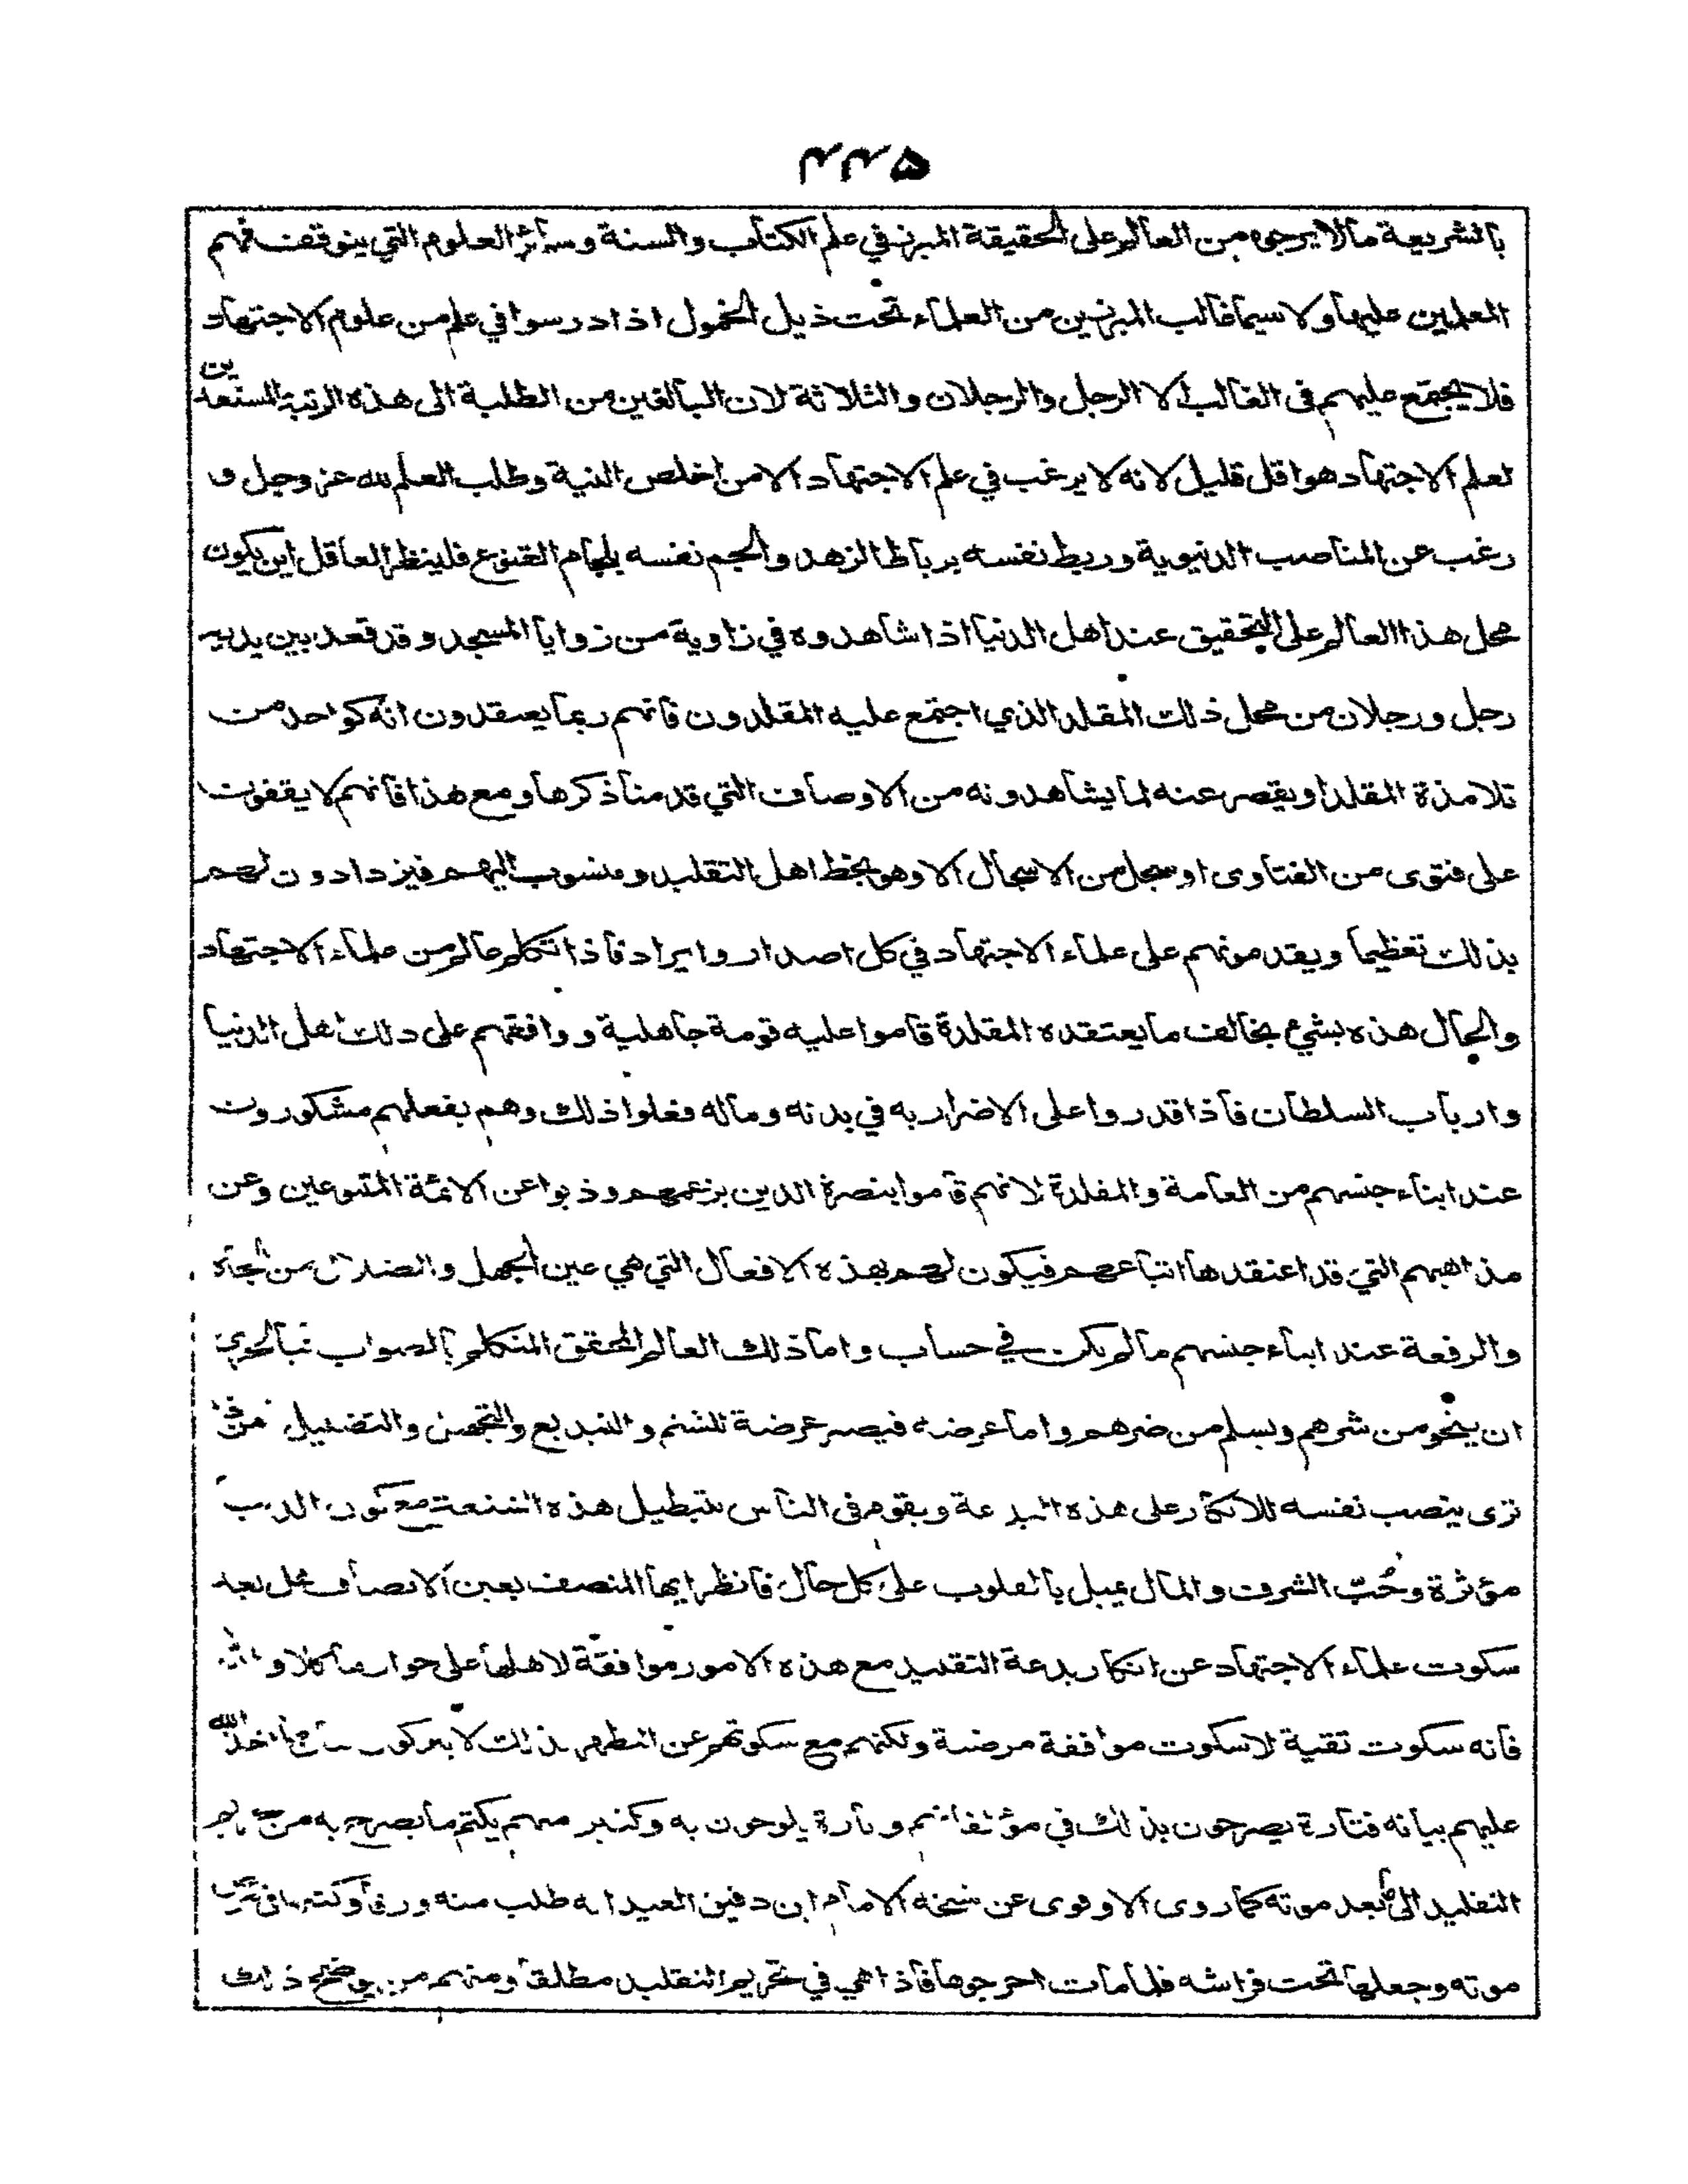 ٢٢٥
بالشريعة مالا يرجوه من العالم على الحقيقة المبرز في علم الكتاب والسنة وسائر العلوم التي يتوقف فهم
المعلمين عليها ولا سيما غالب المبرزين من العلماء تحت ذيل الخمول اذا درسوا في علم من علوم الاجتهاد
فلا يجتمع عليهم في الغالب الا الرجل والرجلان والثلاثة لان البالغين من الطلبة الى هذه الرتبة المستعدين
لعلم الاجتهاد هو اقل قليل لانه لا يرغب في علم الاجتهاد الا من اخلص النية وطلب العلم لله عز وجل و
رغب عن المناصب الدنيوية وربط نفسه برباط الزهد والجم نفسه بلجام القنوع فلينظر العاقل اين يكون
محل هذا العالم على التحقيق عند اهل الدنيا اذا شاهدوه في زاوية من زوايا المسجد وقد قعد بين يديه
رجل ورجلان من محل ذلك المقلد الذي اجتمع عليه المقلدون فانهم ربما يعتقدون انه كواحد من
تلامذة المقلد او يقصر عنه لما يشاهدونه من الاوصاف التي قدمنا ذكرها ومع هذا فانهم لا يقفون
على فتوى من الفتاوى او سجل من الاسجال الا وهو بخط اهل التقليد ومنسوب اليهم فيزدادون لهم
بذلك تعظيما ويقدمونهم على علماء الاجتهاد في كل اصدار وايراد فاذا تكلم عالم من علماء الاجتهاد
والحال هذه بشيء يخالف ما يعتقده المقلدة قاموا عليه قومة جاهلية ووافقهم على ذلك اهل الدنيا
وارباب السلطان فاذا قدروا على الاضرار به في بدنه وماله فعلوا ذلك وهم بفعلهم مشكورون
عند ابناء جنسهم من العامة والمقلدة لانهم قاموا بنصرة الدين بزعمهم وذبوا عن الائمة المتبوعين وعن
مذاهبهم التي قد اعتقدها اتباعهم فيكون لهم بهذه الافعال التي هي عين الجهل والضلال من الجاه
والرفعة عند ابناء جنسهم ما لم يكن في حساب واما ذلك العالم المحقق المتكلم بالصواب فبالحرى
ان ينجو من شرهم ويسلم من ضرهم واما عرضه فيصير عرضة للشتم والتبديع والتجهيل والتضليل فمن ذا
ترى ينصب نفسه للانكار على هذه البدعة ويقوم في الناس بتبطيل هذه الشنعة مع كون الدنيا
مؤثرة وحُبّ الشرف والمال يميل بالقلوب على كل حال فانظر ايها المنصف بعين الانصاف هل يعد
سكوت علماء الاجتهاد عن انكار بدعة التقليد مع هذه الامور موافقة لاهلها على جوازها كلا والله
فانه سكوت تقية لا سكوت موافقة مرضية ولكنهم مع سكوتهم عن التظهر بذلك لا يتركون بيان ما اخذ الله
عليهم بيانه فتارة يصرحون بذلك في مؤلفاتهم وتارة يلوحون به وكثير منهم يكتم ما يصرح به من تحريم
التقليد الى بعد موته كما روى الادفوى عن شيخه الامام ابن دقيق العيد انه طلب منه ورقا وكتبها في مرض
موته وجعلها تحت فراشه فلما مات اخرجوها فاذا هي في تحريم التقليد مطلقا ومنهم من يوضح ذلك